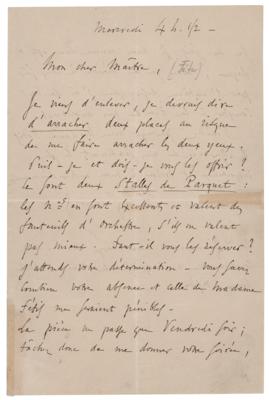 Mercredi 4 h. 1/2 —
Mon cher Maître, (Fétis)
Je viens d'enlever, je devrais dire
d'arracher deux places au risque
de me faire arracher les deux yeux.
Puis-je et dois-je vous les offrir ?
Ce sont deux Stalles de Parquet :
les Nos en sont excellents et valent des
fauteuils d'Orchestre, s'ils ne valent
pas mieux. Faut-il vous les réserver ?
J'attends votre détermination — Vous savez
combien votre absence et celle de Madame
Fétis me seraient pénibles —
La pièce ne passe que Vendredi soir ;
tâchez donc de me donner votre soirée,